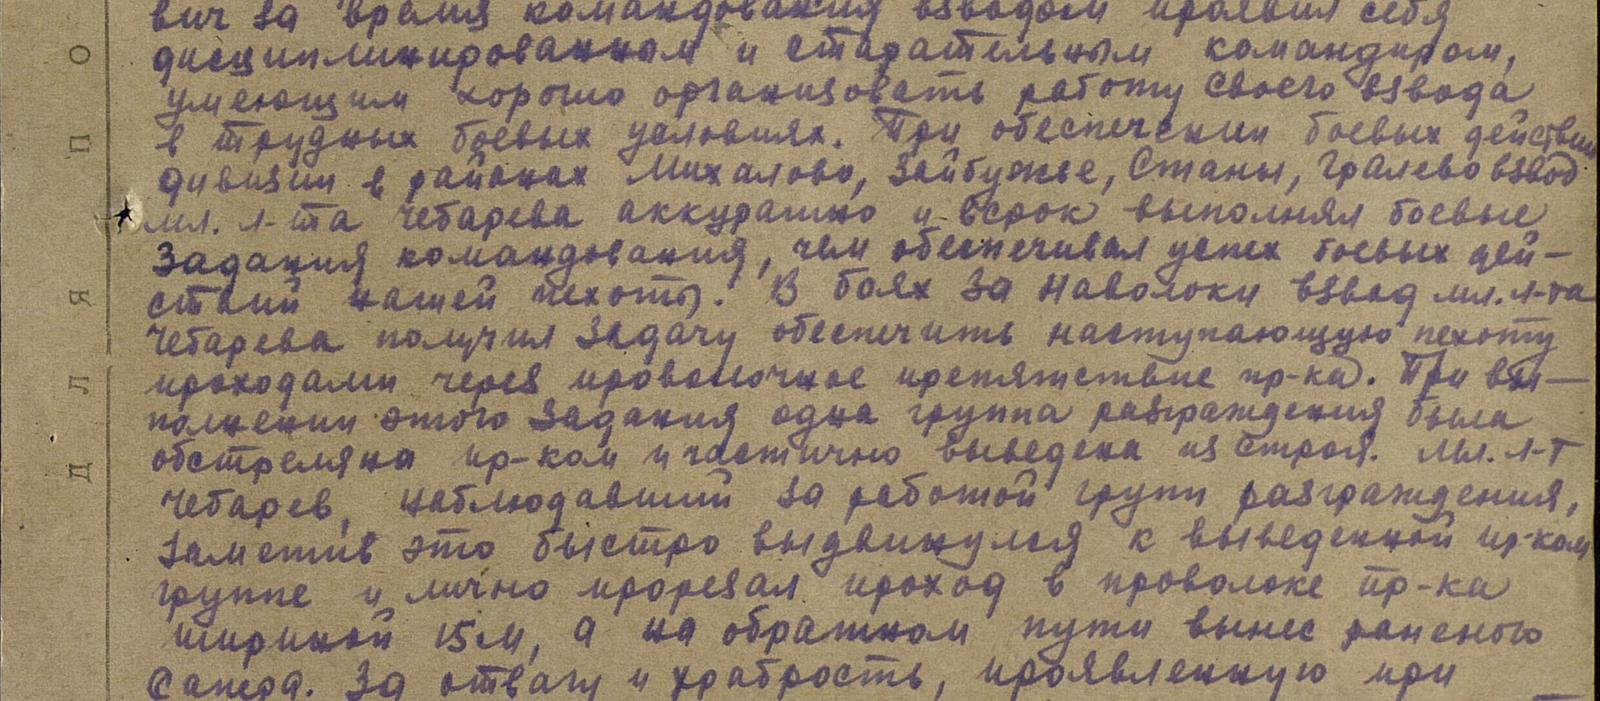 вич за время командования взводом проявил себя
дисциплинированным и старательным командиром,
умеющим хорошо организовать работу своего взвода
в трудных боевых условиях. При обеспечении боевых действий
дивизии в районах Михалово, Зайбужье, Станы, Гралево взвод
мл. л-та Чебарева аккуратно и всрок выполнял боевые
задания командования, чем обеспечивал успех боевых дей-
ствий нашей пехоты. В боях за Наволоки взвод мл. л-та
Чебарева получил задачу обеспечить наступающую пехоту
проходами через проволочное препятствие пр-ка. При вы-
полнении этого задания одна группа разграждения была
обстреляна пр-ком и частично выведена из строя. Мл. л-т
Чебарев, наблюдавший за работой групп разграждения,
заметив это быстро выдвинулся к выведенной пр-ком
группе и лично прорезал проход в проволоке пр-ка
шириной 15 м, а на обратном пути вынес раненого
сапера. За отвагу и храбрость, проявленную при
Д Л Я П О